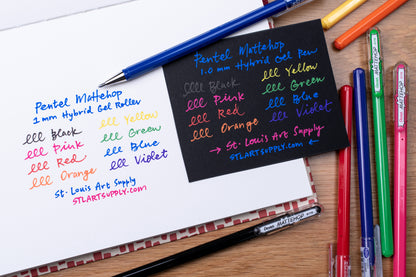 Pentel Mattehop
1 mm Hybrid Gel Roller
lll Black
lll Yellow
lll Pink
lll Green
lll Red
lll Blue
lll Orange
lll Violet
St. Louis Art Supply
STLARTSUPPLY.COM
Pentel Mattehop
1.0 mm Hybrid Gel Pen
lll Black
lll Yellow
lll Pink
lll Green
lll Red
lll Blue
lll Orange
lll Violet
→ St. Louis Art Supply
STLARTSUPPLY.COM ←
MATTEHOP